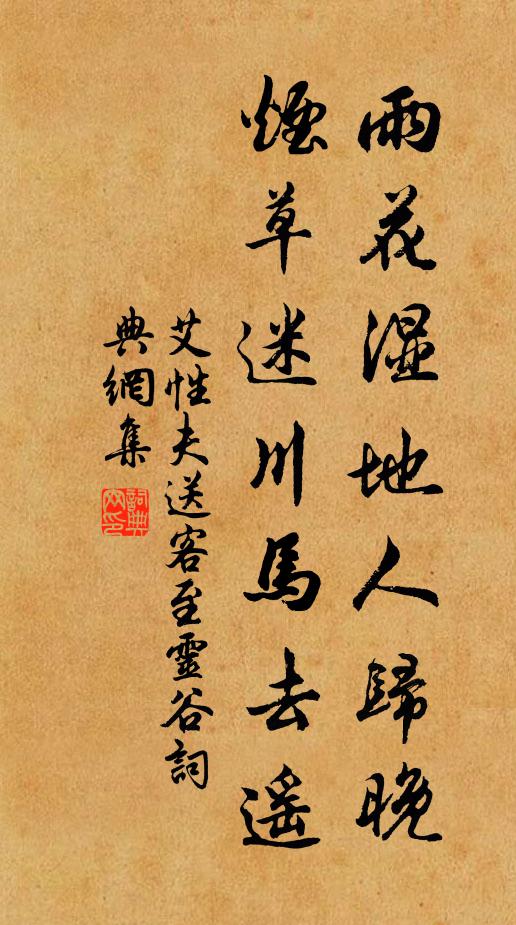 雨花湿地人歸晚
煙草迷川馬去遥
艾性夫送客至靈谷詞
典網集
詞典
网印